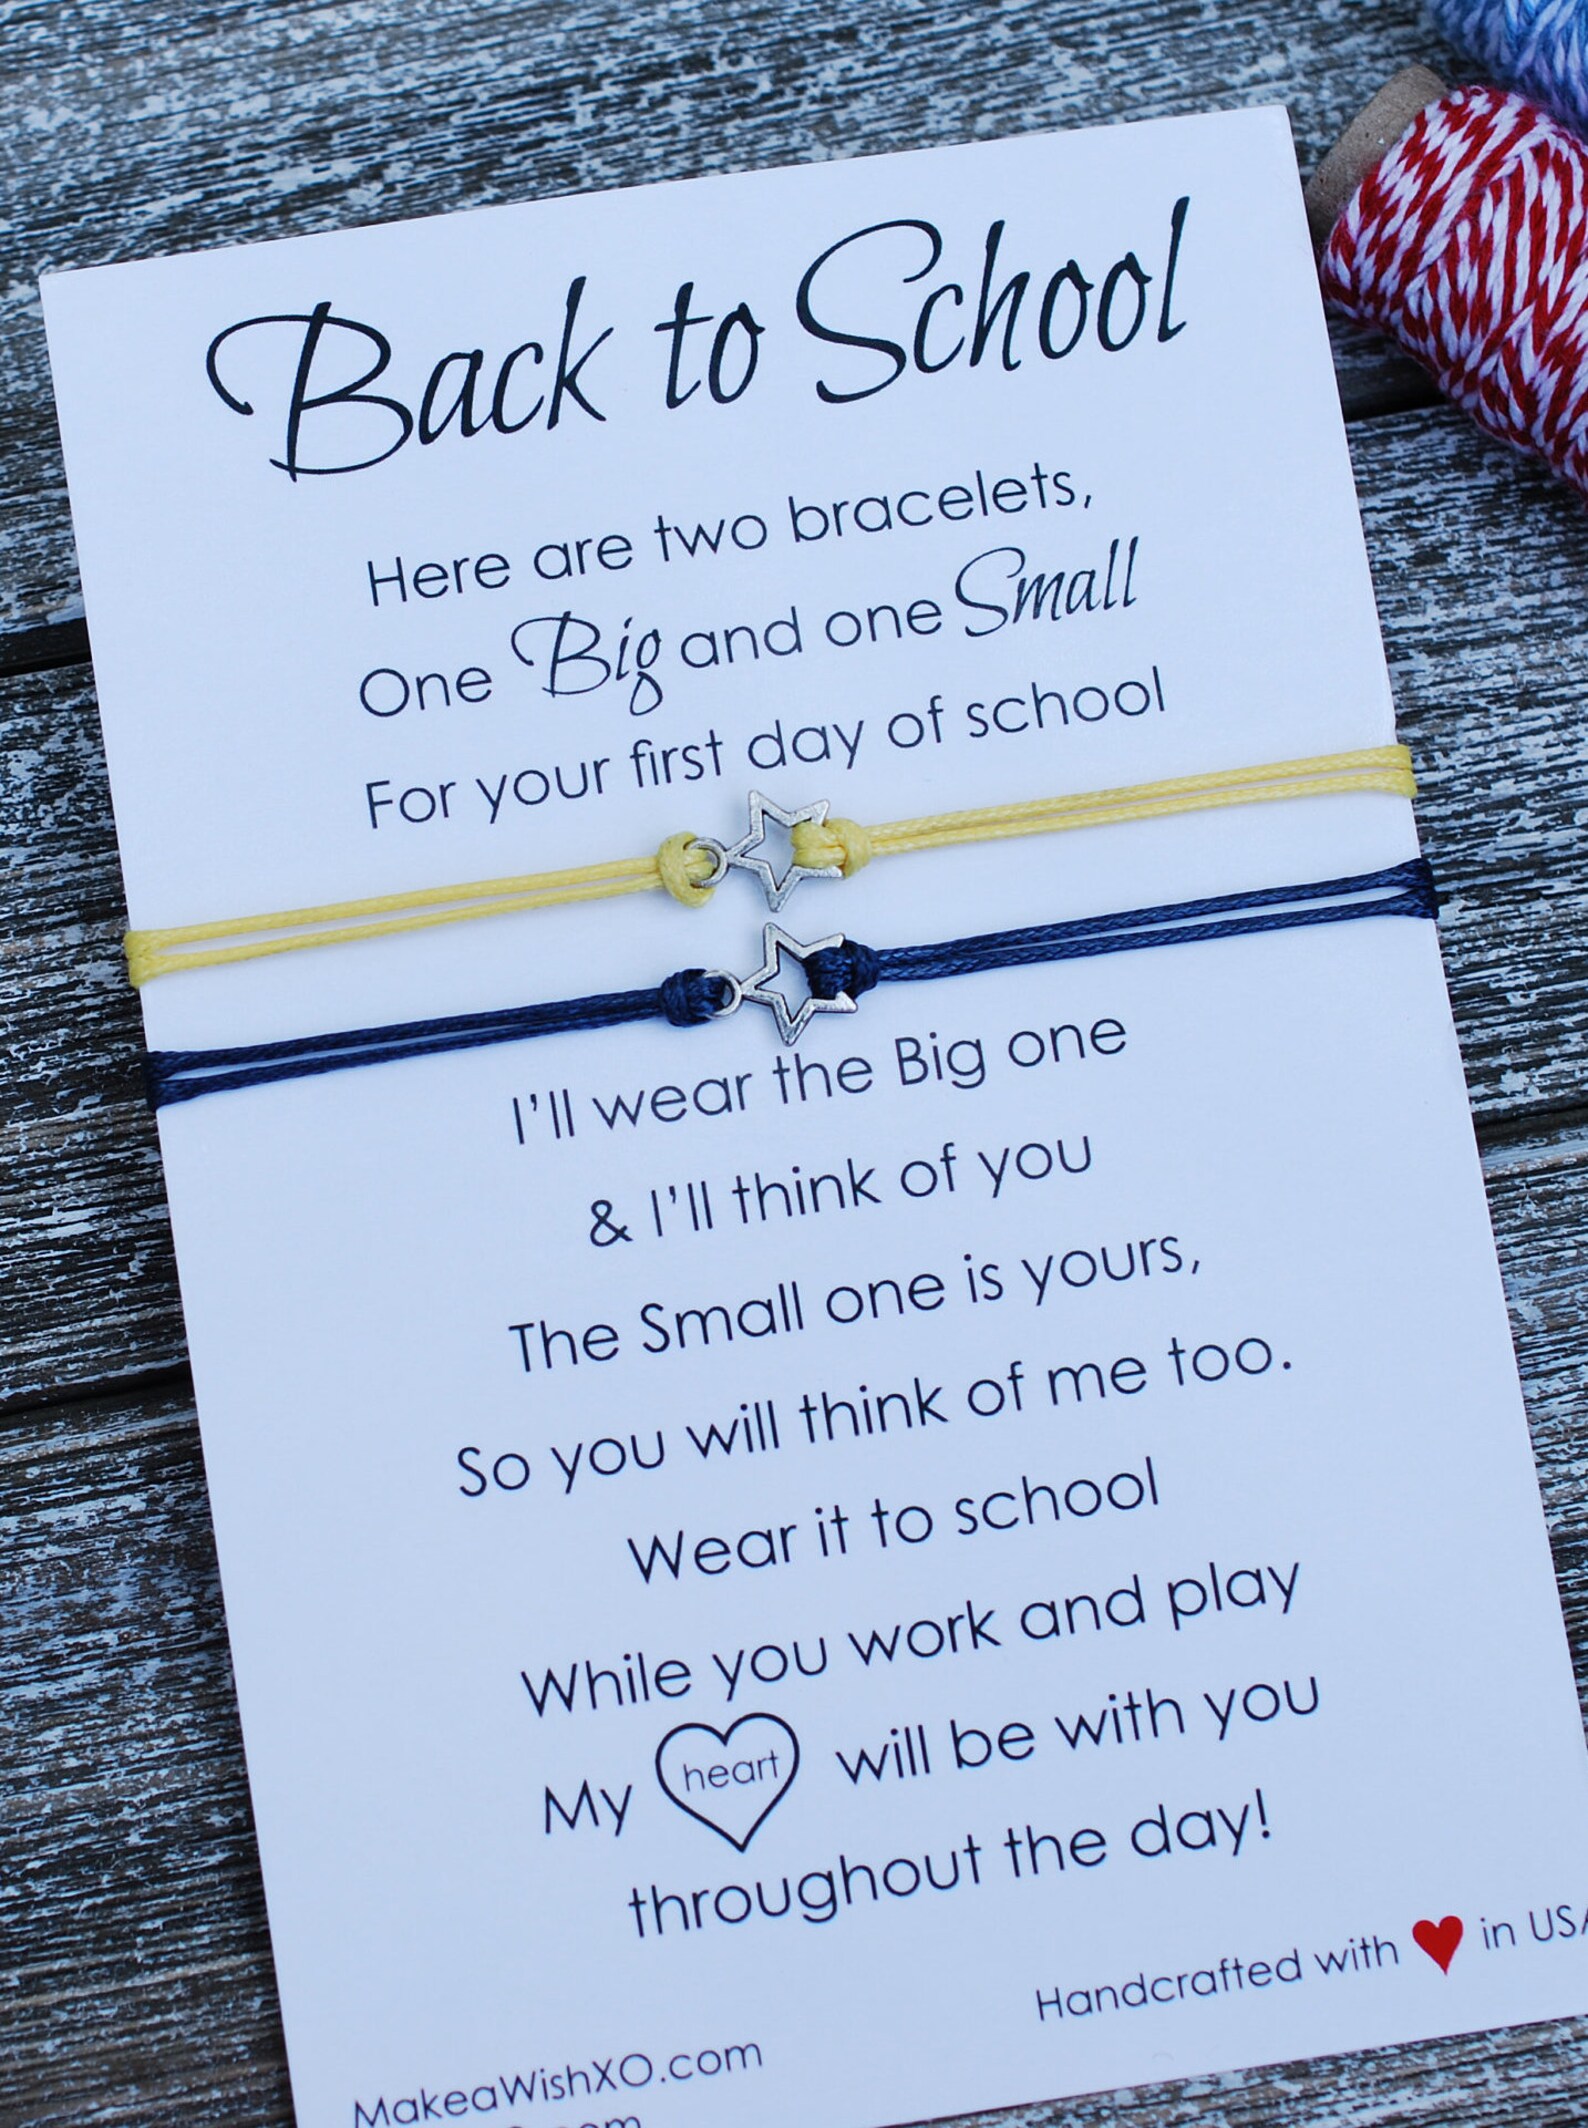 Back to School
Here are two bracelets,
One Big and one Small
For your first day of school
I'll wear the Big one
& I'll think of you
The Small one is yours,
So you will think of me too.
Wear it to school
While you work and play
My heart will be with you
throughout the day!
Handcrafted with ♥ in USA
MakeaWishXO.com